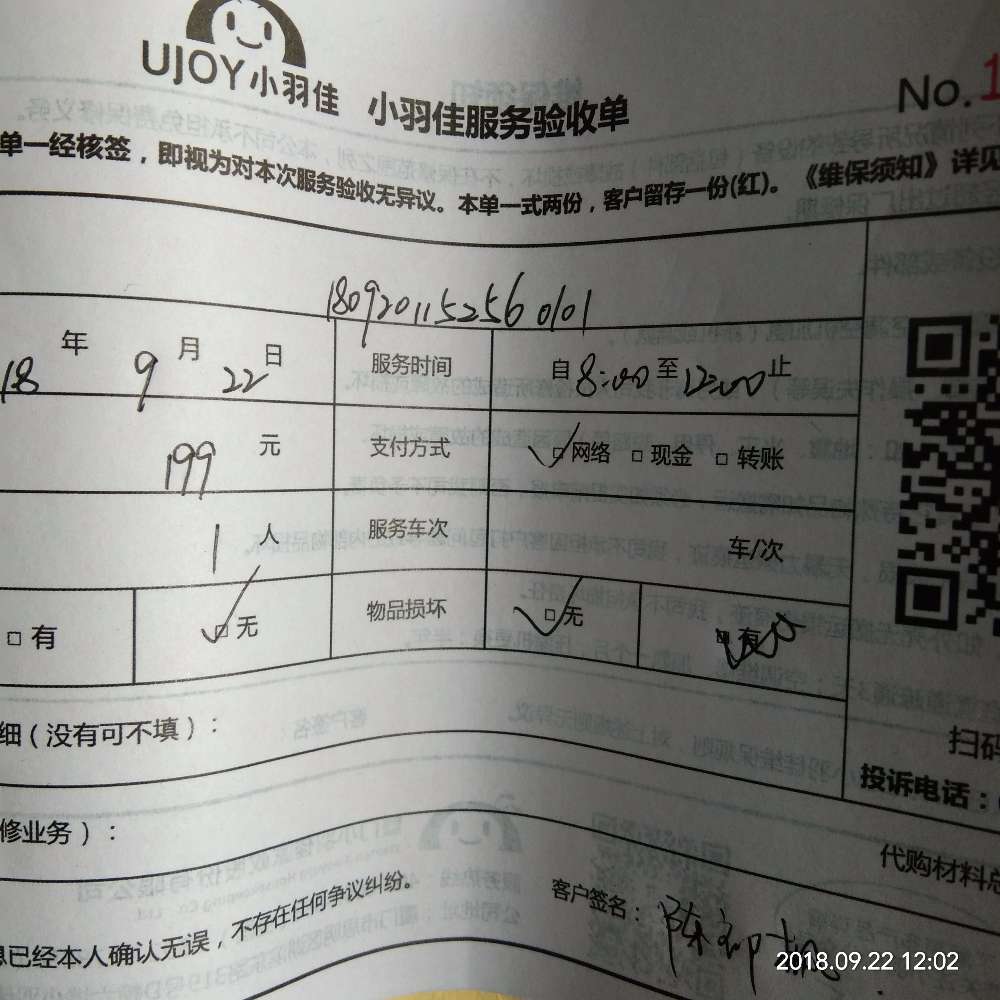 UJOY小羽佳 小羽佳服务验收单 No.1
单一经核签，即视为对本次服务验收无异议。本单一式两份，客户留存一份(红)。《维保须知》详见
1809201152560101
18 年 9 月 22 日 服务时间 自 8:00 至 12:00 止
199 元 支付方式 ☑网络 □现金 □转账
1 人 服务车次 车/次
□有 ☑无 物品损坏 ☑无 有
细（没有可不填）：
扫码
投诉电话：
修业务）：
代购材料总
息已经本人确认无误，不存在任何争议纠纷。 客户签名：陈
2018.09.22 12:02